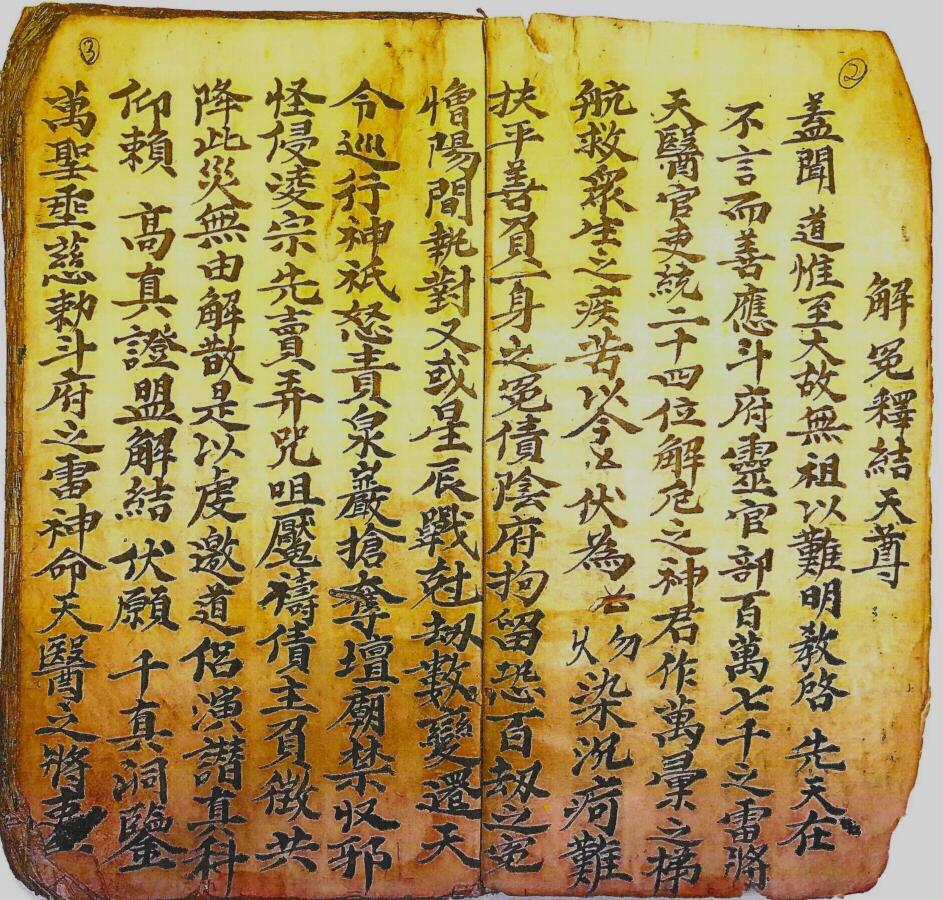 ②
解冤釋結天尊
蓋聞 道惟至大故無祖以難明教啓 先天在
不言而善應斗府靈官部百萬七千之雷將
天醫官吏統二十四位解厄之神君作萬彙之梯
航救衆生之疾苦以今厶伏為厶 火勿染沉疴難
扶平善負一身之冤債陰府拘留恐百刼之冤
憎陽間執對又或星辰戰尅刼數變遷天
③
令巡行神祇怒責泉巖搶奪壇廟禁収邪
怪侵凌宗先賣弄咒咀魘禱債主負徵共
降此災無由解散是以虔邀道侶演譛真科
仰賴 高真證盟解結 伏願 千真洞鑒
萬聖垂慈勅斗府之雷神命天醫之將吏